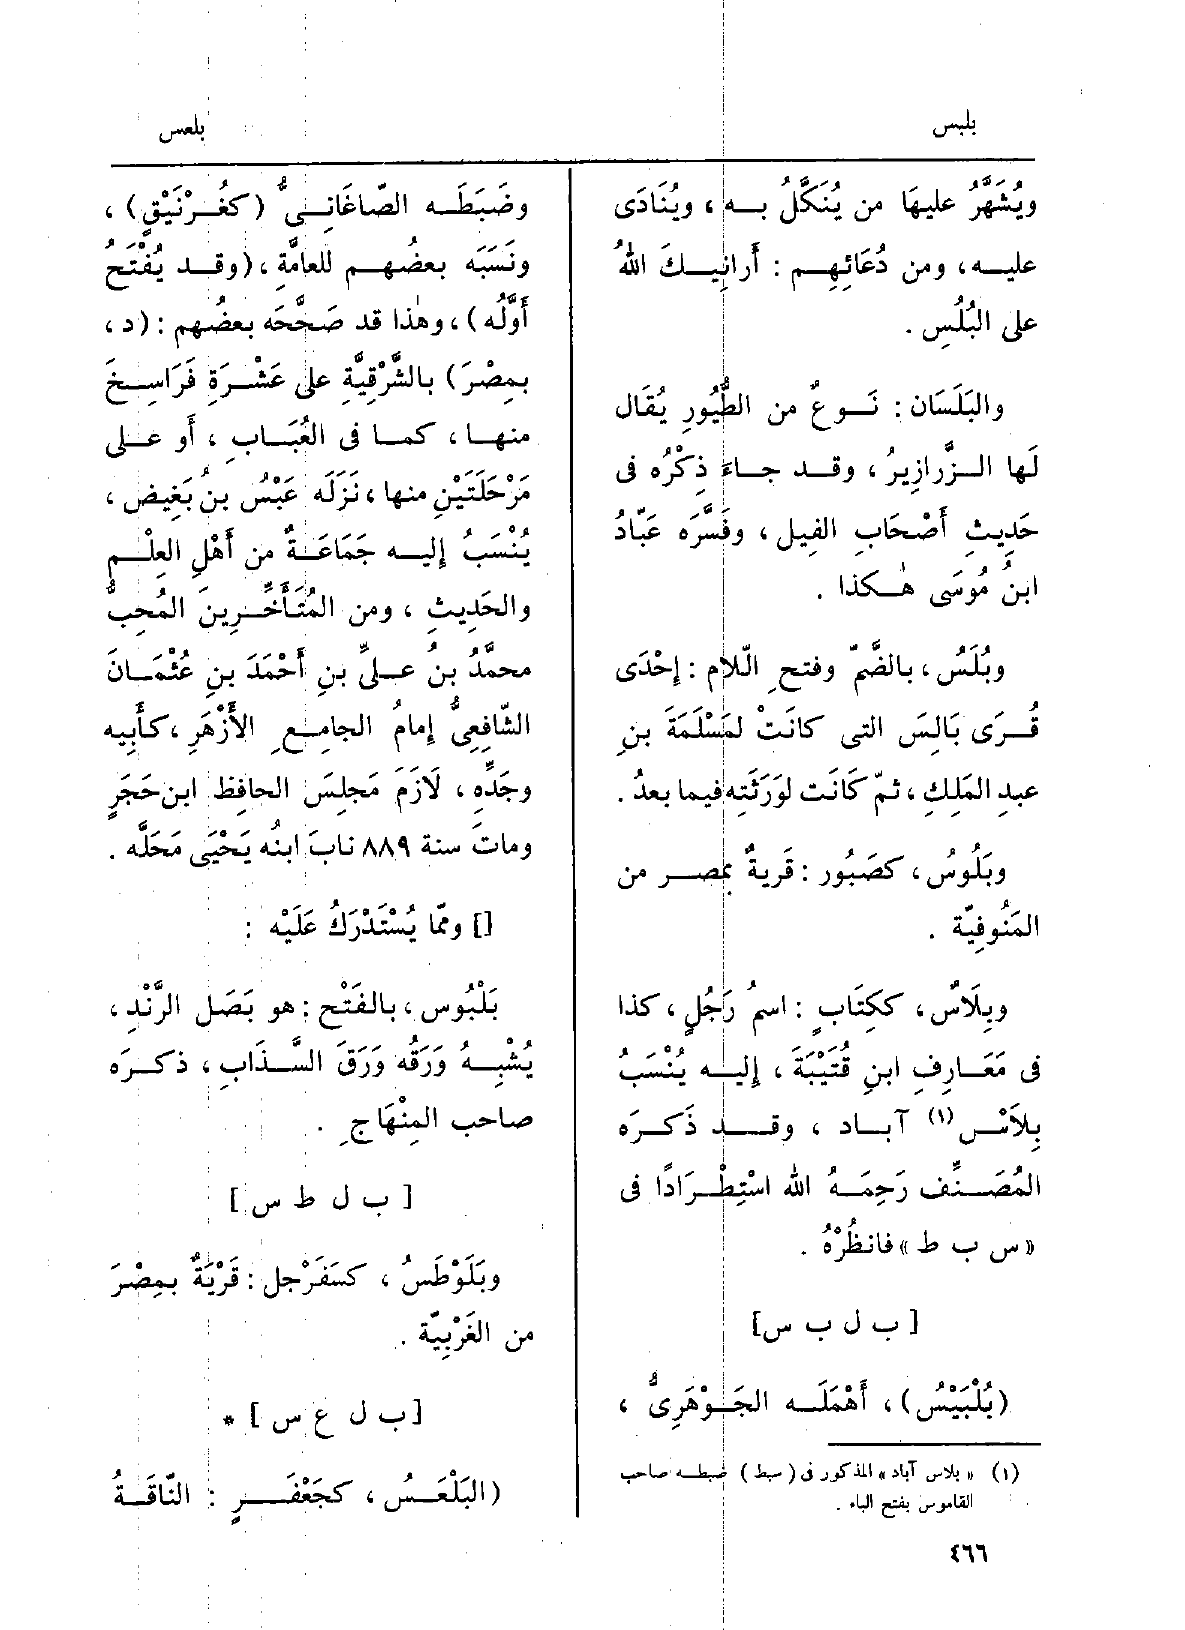 بلبس
بلعس
ويُشَهَّرُ عليهَا من يُنَكَّلُ بــه ، ويُنَادَى
عليــه، ومن دُعَائِهِم : أَرانِيــكَ اللهُ
على البُلُسِ .
والبَلَسَان : نَــوعٌ من الطُّيُورِ يُقَال
لَها الــزَّرازِيرُ ، وقــد جــاءَ ذِكْرُه فى
حَدِيثِ أَصْحَابِ الفِيل ، وفَسَّرَه عَبّادُ
ابنُ مُوسَى هٰــكذا .
وبُلَسُ ، بالضَّمّ وفتحِ الّلام : إِحْدَى
قُــرَى بَالِسَ التى كانَتْ لمَسْلَمَةَ بنِ
عبدِ المَلِكِ ، ثمّ كَانَت لوَرَثَتِه فيما بعدُ .
وبَلُوسُ ، كصَبُور : قَريةٌ بمصــر من
المَنُوفِيّة .
وبِلَاسٌ ، ككِتَابٍ : اسمُ رَجُلٍ ، كذا
فى مَعَــارِفِ ابنِ قُتَيْبَةَ ، إِليــه يُنْسَبُ
بِلاَسُ (١) آبــاد ، وقــد ذَكَــرَه
المُصَنِّف رَحِمَــهُ الله اسْتِطْــرَادًا فى
«س ب ط» فانظُرْهُ .
[ ب ل ب س]
(بُلْبَيْسُ) ، أَهْمَلَــه الجَــوْهَرِىُّ ،
(١) « بلاس آباد » المذكور فى ( سبط ) ضبطه صاحب
القاموس بفتح الباء .
وضَبَطَــه الصّاغَانِــىُّ (كغُــرْنَيْقٍ) ،
ونَسَبَه بعضُهــم للعامَّةِ ، (وقــد يُفْتَحُ
أَوَّلُه) ، وهٰذا قد صَحَّحَه بعضُهم : (د ،
بمِصْرَ) بالشَّرْقِيَّةِ على عَشْــرَةِ فَرَاسِــخَ
منهــا ، كمــا فى العُبَــابِ ، أَو علــى
مَرْحَلَتَيْنِ منها ، نَزَلَه عَبْسُ بنُ بَغِيض ،
يُنْسَبُ إِليــه جَمَاعَــةٌ من أَهْلِ العِلْــمِ
والحَدِيثِ ، ومن المُتَأَخِّــرِينَ المُحِبُّ
محمَّدُ بنُ علــىِّ بنِ أَحْمَدَ بنِ عُثْمَــانَ
الشّافِعِىُّ إِمَامُ الجامِعِ الأَزْهَرِ ، كأَبِيه
وجَدِّه ، لَازَمَ مَجلِسَ الحافِظِ ابن حَجَرٍ
وماتَ سنة ٨٨٩ نابَ ابنُه يَحْيَى مَحَلَّه .
[] وممّا يُسْتَدْرَكُ عَلَيْه :
بَلْبُوس ، بالفَتْح : هو بَصَل الرَّنْدِ ،
يُشْبِــهُ وَرَقُه وَرَقَ السَّــذَابِ ، ذكــرَه
صاحب المِنْهَاجِ .
[ ب ل ط س ]
وبَلَوْطَسُ ، كسَفَرْجل : قَرْيَةٌ بــمِصْرَ
من الغَرْبِيّة .
[ب ل ع س ] *
(البَلْعَــسُ ، كجَعْفَــرٍ : النّاقَــةُ
٤٦٦